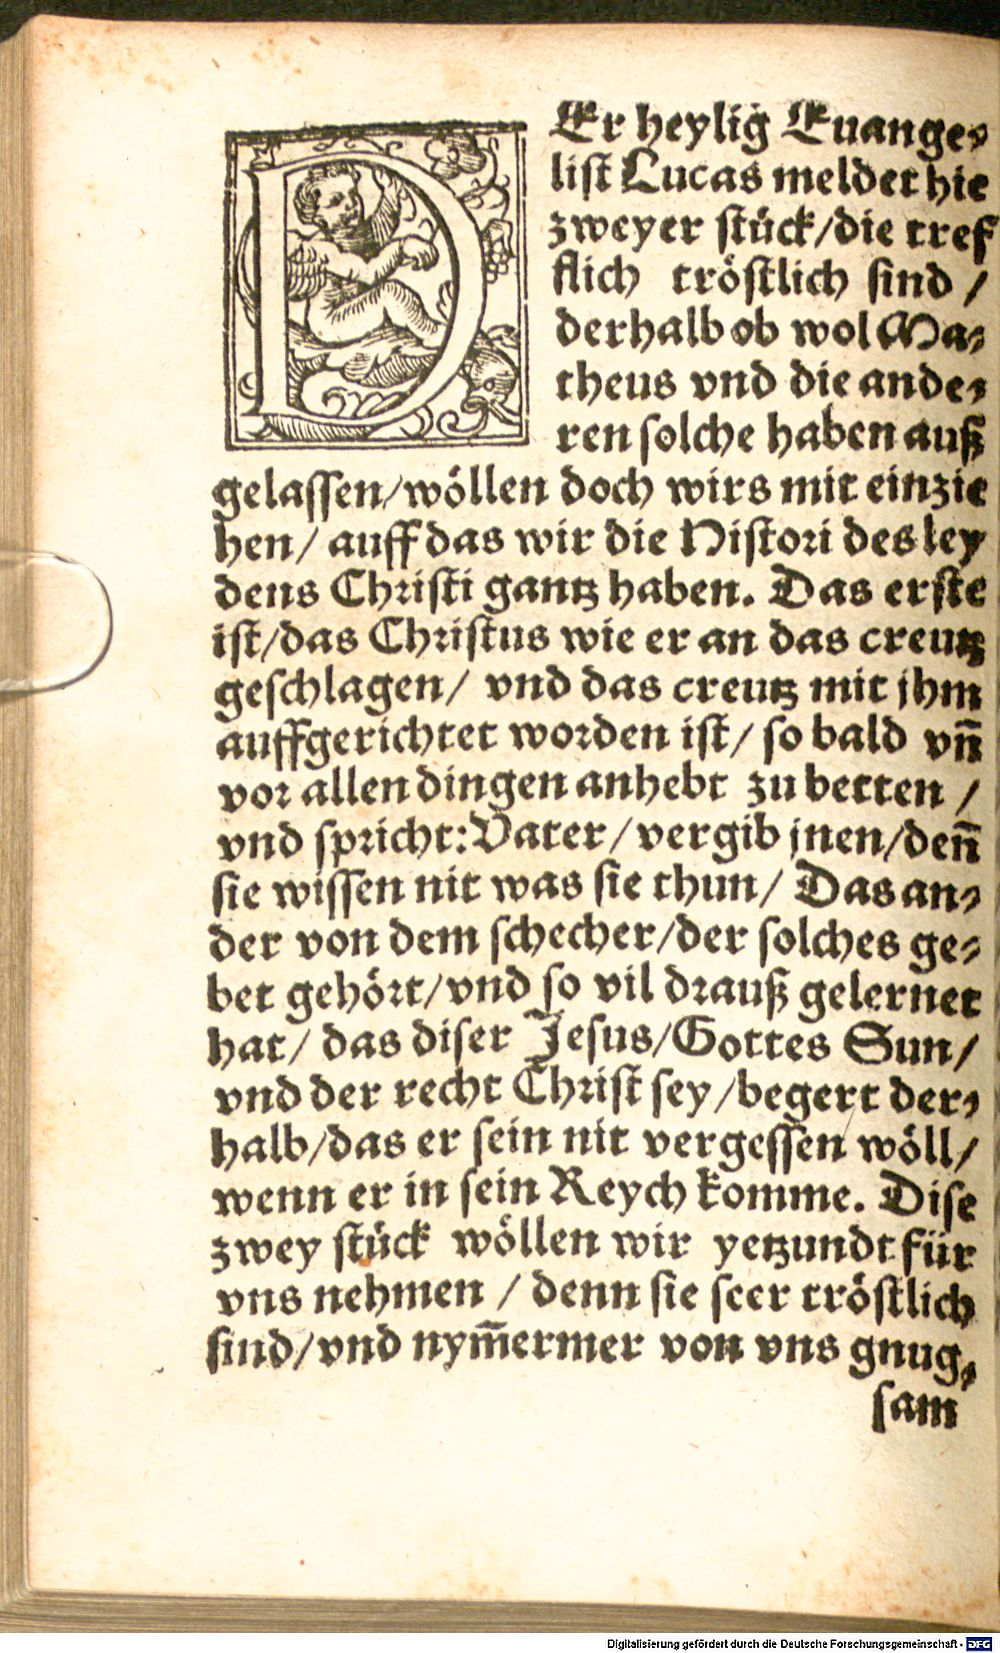 DEr heylig Euange⸗
list Lucas meldet hie
zweyer stück/die tref
flich tröstlich sind /
derhalb ob wol Ma⸗
theus vnd die ande⸗
ren solche haben auß
gelassen/wöllen doch wirs mit einzie
hen/ auff das wir die Histori des ley
dens Christi gantz haben. Das erste
ist/das Christus wie er an das creutz
geschlagen/ vnd das creutz mit jhm
auffgerichtet worden ist/ so bald vñ
vor allen dingen anhebt zu betten /
vnd spricht: Vater/vergib jnen/deñ
sie wissen nit was sie thun/ Das an⸗
der von dem schecher/der solches ge⸗
bet gehört/vnd so vil drauß gelernet
hat/ das diser Jesus/Gottes Sun/
vnd der recht Christ sey/begert der⸗
halb/das er sein nit vergessen wöll/
wenn er in sein Reych komme. Dise
zwey stück wöllen wir yetzundt für
vns nehmen / denn sie seer tröstlich
sind/vnd nym̄ermer von vns gnug⸗
sam
Digitalisierung gefördert durch die Deutsche Forschungsgemeinschaft - DFG